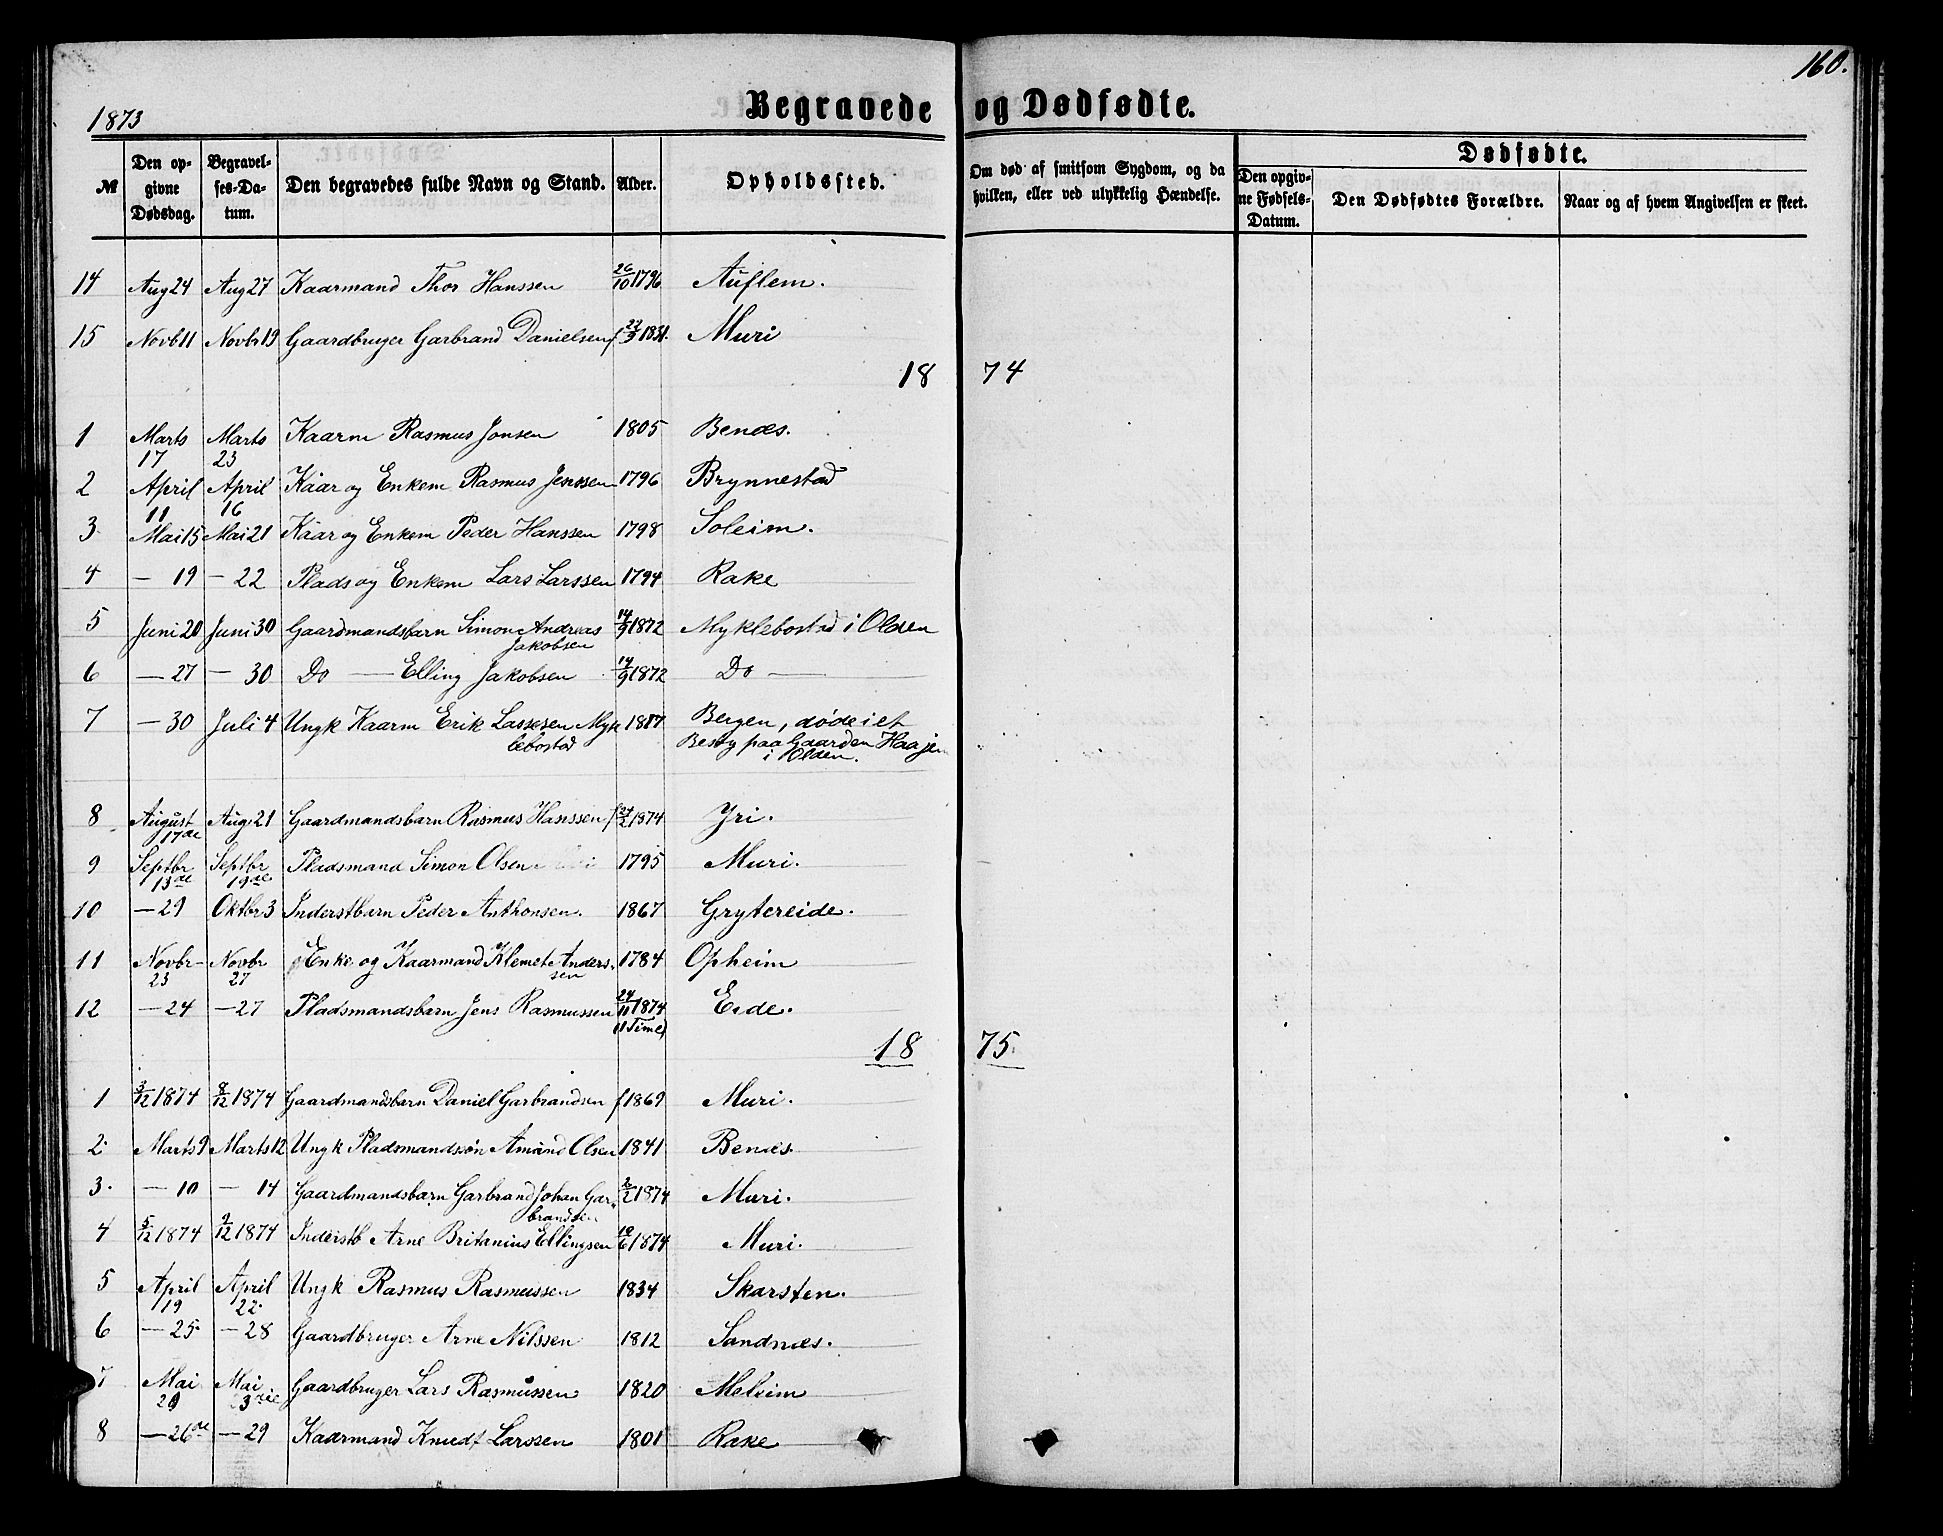 160.
1873
Begravede og Dødfødte.
№ | Den opgivne Dødsdag. | Begravelses-Datum. | Den begravedes fulde Navn og Stand. | Alder. | Opholdssted. | Om død af smitsom Sygdom, og da hvilken, eller ved ulykkelig Hændelse. | Dødfødte. | Den opgivne Fødsels-Datum. | Den Dødfødtes Forældre. | Naar og af hvem Angivelsen er skeet.
14 Aug 24 Aug 27 Kaarmand Thor Hanssen 26/10 1796 Auflem.
15 Novb 11 Novbr 19 Gaardbruger Garbrand Danielsen f 1831. Muri
18 74
1 Marts 17 Marts 23 Kaarm Rasmus Jonsen 1805 Benæs.
2 April 11 April 16 Kaar og Enkem Rasmus Jenssen 1796 Brynnestad
3. Mai 15 Mai 21 Kaar og Enkem Peder Hanssen 1798 Soleim.
4 — 19 — 22 Plads og Enkem Lars Larssen 1794 Rake
5 Juni 20 Juni 30 Gaardmandsbarn Simon Andreas Jakobsen 14/9 1872 Myklebostad i Olden
6 — 27 — 30 Do — Elling Jakobsen 14/9 1872 Do —
7 — 30 Juli 4 Ungk Kaarm Erik Lassesen Myklebostad Bergen, døde i et
Besøg paa Gaarden Haajen
i Olden.
8 August 17de Aug 21 Gaardmandsbarn Rasmus Hanssen f 24/2 1874 Yri.
9 Septbr 13de Septbr 19de Pladsmand Simon Olsen 1795 Muri.
10 — 29 Oktbr 3 Inderstbarn Peder Anthonsen. 1867 Grytereide.
11 Novbr 23 Novbr 27 Enke og Kaarmand Klemet Anderssen 1784 Opheim
12 — 24 — 27 Pladsmandsbarn Jens Rasmussen 24/11 1874 11 Time) Eide.
18 75.
1 3/12 1874 8/12 1874 Gaardmandsbarn Daniel Garbrandsen f 1869 Muri.
2. Marts 9 Marts 12 Ungk Pladsmandssøn Amund Olsen 1841 Benæs.
3. — 10 — 14 Gaardmandsbarn Garbrand Johan Garbrandsen 2/2 1874 Muri.
4 5/12 1874 9/12 1874 Inderstb Arne Britanius Ellingsen 10/6 1874 Muri.
5 April 19 April 22. Ungk Rasmus Rasmussen 1834 Skarsten.
6 — 25. — 28 Gaardbruger Arne Nilssen 1812 Sandnæs.
7 Mai 20 Mai Gaardbruger Lars Rasmussen 1820 Melheim
8 — 26de — 29 Kaarmand Knudt Larssen 1801 Rake